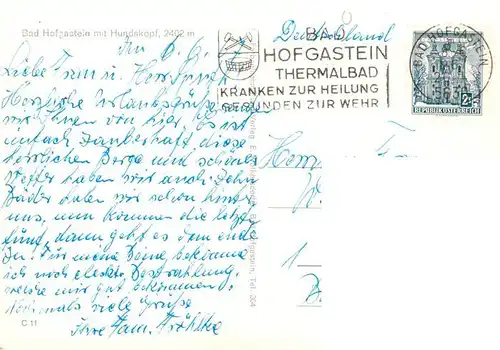 Bad Hofgastein mit Hundskopf, 2402 m
Deutschland
Liebe Fam. u. Herr
Herzliche Urlaubsgrüße
wir Ihnen von hier. Es ist
einfach zauberhaft, diese
herrlichen Berge und schönes
Wetter haben wir auch. Zehn
Bäder haben wir schon hinter
uns, nun kommen die letzten
fünf, dann geht es dem Ende
zu. Für meine Beine bekomme
ich noch elektr. Bestrahlung,
welche mir gut bekommen.
Nochmals viele Grüße
Ihre Fam.
C 11
BAD
HOFGASTEIN
THERMALBAD
KRANKEN ZUR HEILUNG
GESUNDEN ZUR WEHR
BAD HOFGASTEIN
5630
REPUBLIK ÖSTERREICH
Herrn